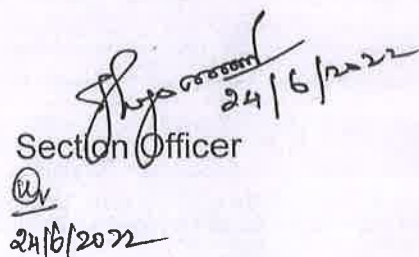 24/6/2022
Section Officer
24/6/2022